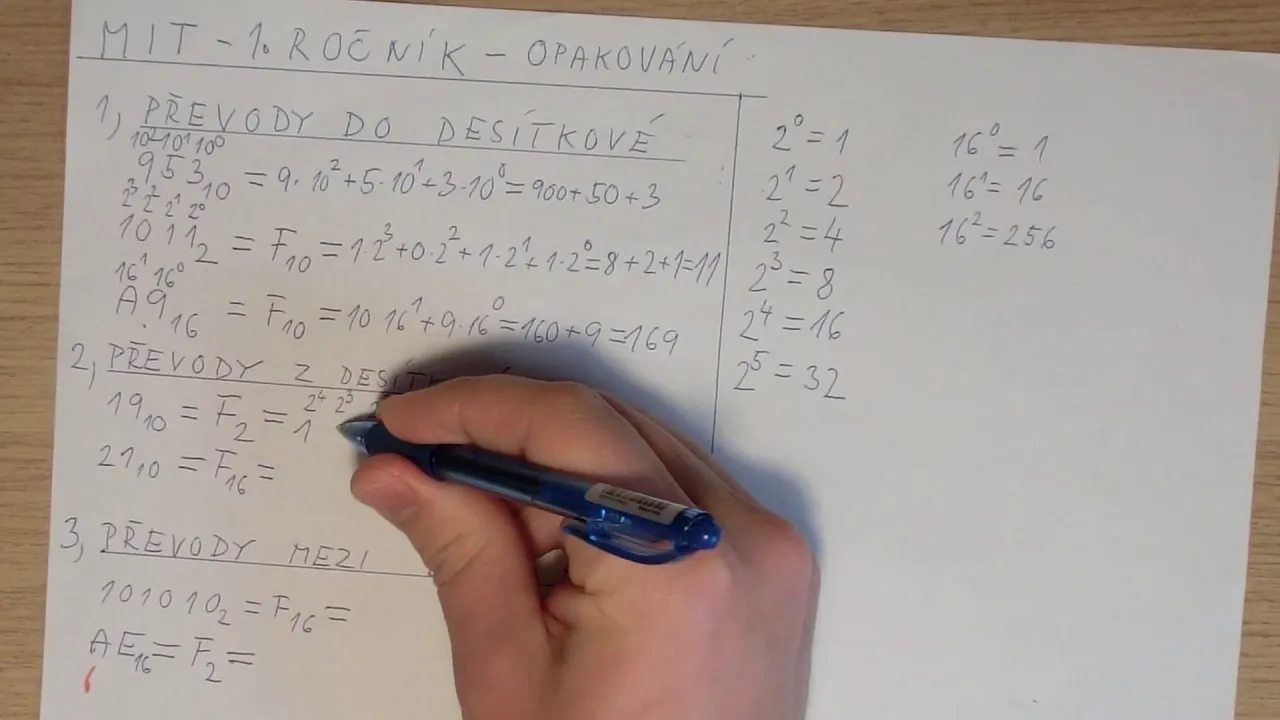 MIT - 1. ROČNÍK - OPAKOVÁNÍ
1, PŘEVODY DO DESÍTKOVÉ
10² 10¹ 10⁰
953₁₀ = 9·10²+5·10¹+3·10⁰=900+50+3
2³ 2² 2¹ 2⁰
1011₂ = F₁₀ = 1·2³+0·2²+1·2¹+1·2⁰=8+2+1=11
16¹ 16⁰
A9₁₆ = F₁₀ = 10 16¹+9·16⁰=160+9=169
2, PŘEVODY Z
2⁴ 2³
19₁₀ = F₂ = 1
21₁₀ = F₁₆ =
3, PŘEVODY MEZI
101010₂ = F₁₆ =
AE₁₆ = F₂ =
2⁰ = 1
2¹ = 2
2² = 4
2³ = 8
2⁴ = 16
2⁵ = 32
16⁰ = 1
16¹ = 16
16² = 256